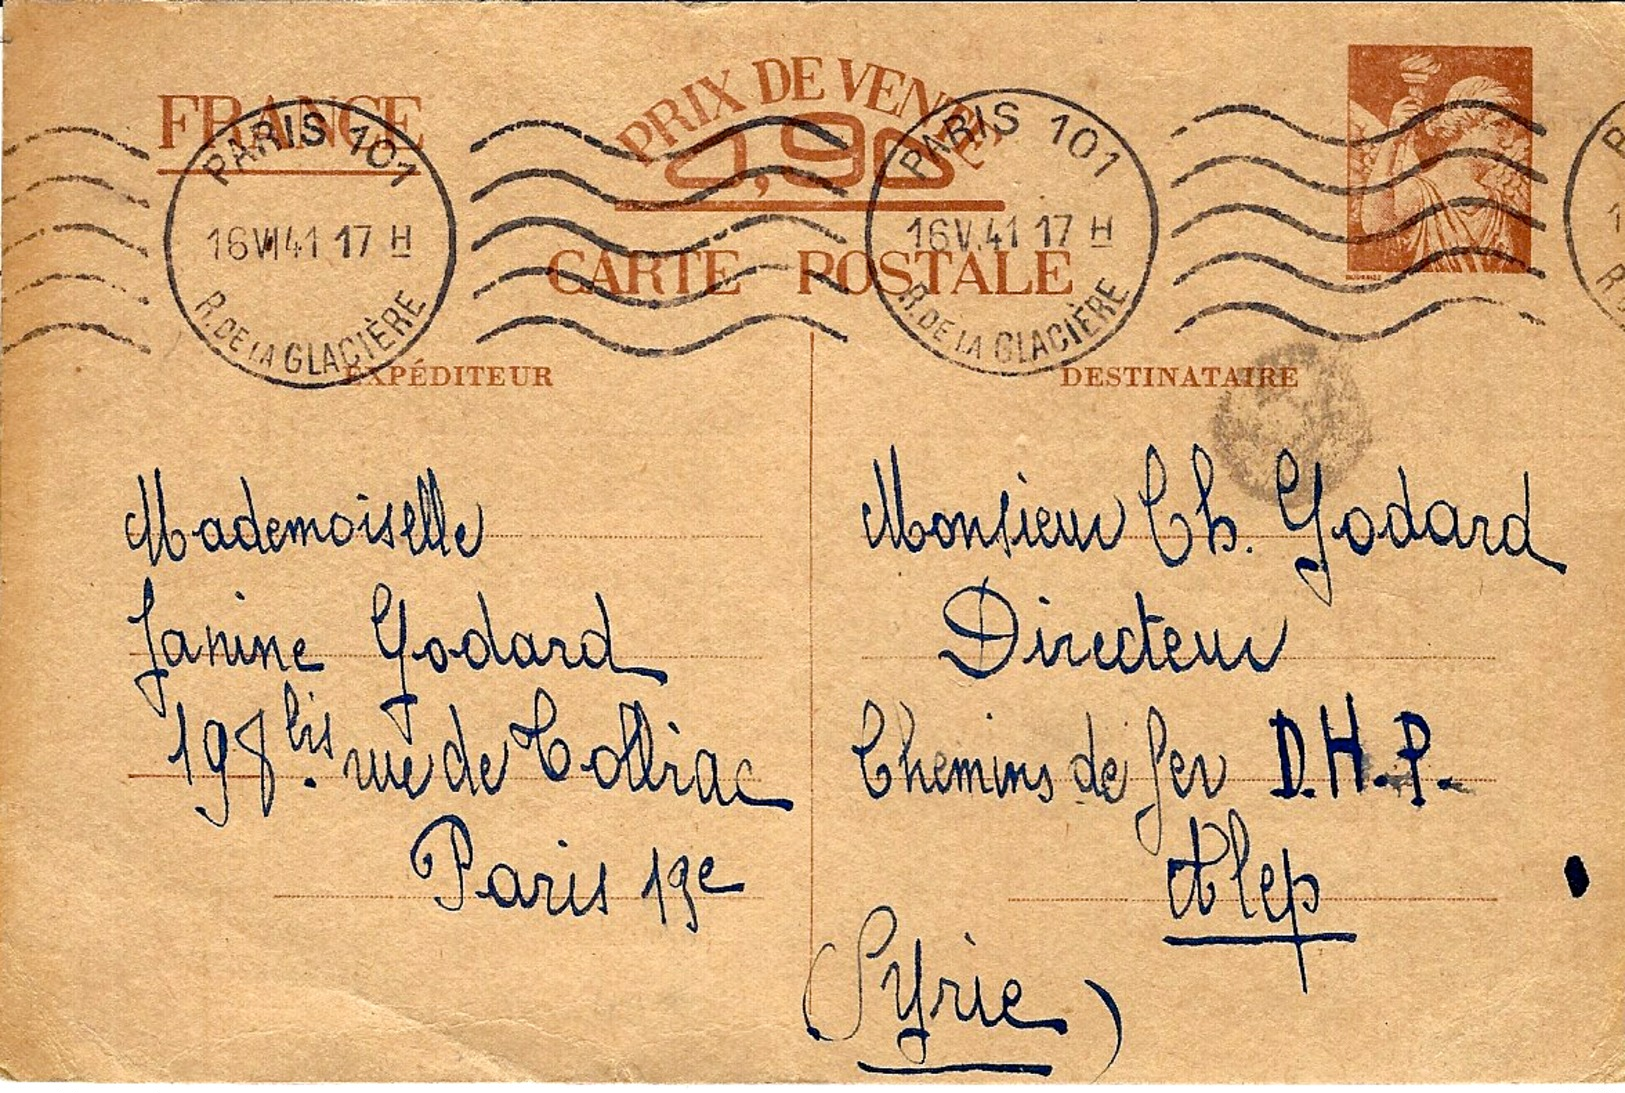 FRANCE
PRIX DE VENTE
0,90
CARTE POSTALE
PARIS 101
16 VI 41 17 H
R. DE LA GLACIÈRE
PARIS 101
16 V. 41 17 H
R. DE LA GLACIÈRE
EXPÉDITEUR
Mademoiselle
Janine Godard
198 bis rue de Tolbiac
Paris 13e
DESTINATAIRE
Monsieur Ch. Godard
Directeur
Chemins de fer D.H.P.
Alep
(Syrie)